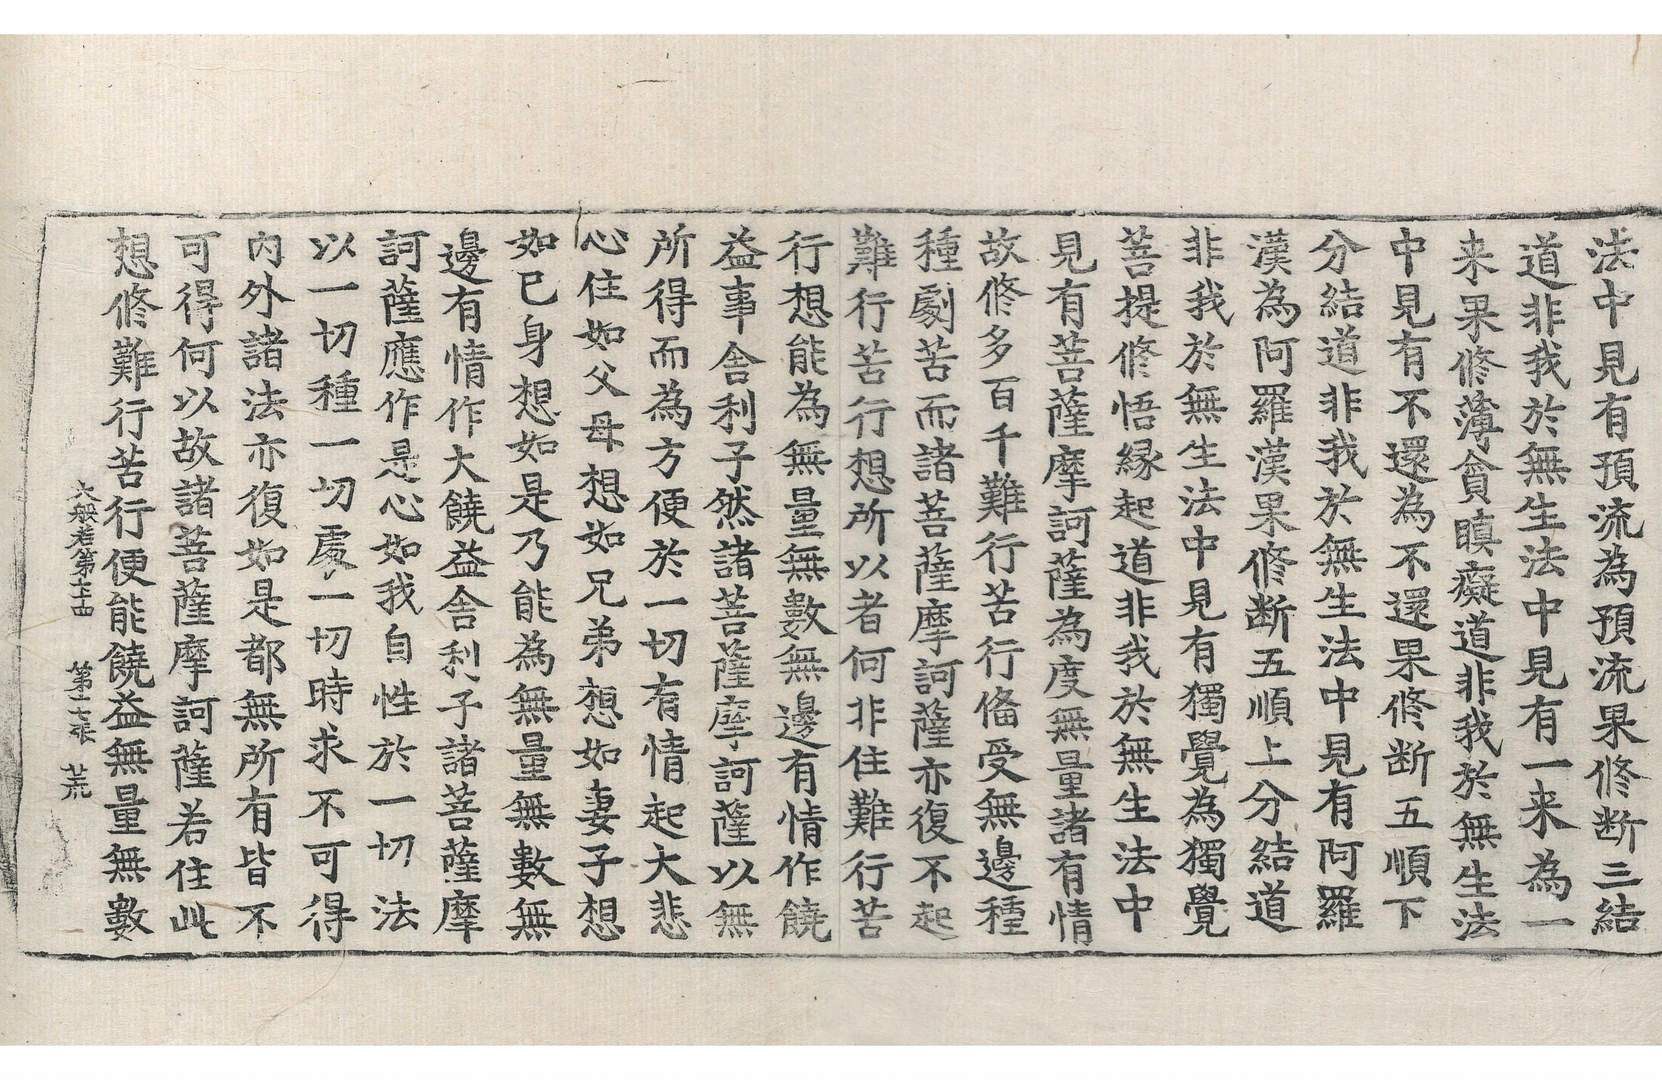 法中見有預流為預流果修断三結
道非我於無生法中見有一来為一
来果修薄貪瞋癡道非我於無生法
中見有不還為不還果修断五順下
分結道非我於無生法中見有阿羅
漢為阿羅漢果修断五順上分結道
非我於無生法中見有獨覺為獨覺
菩提修悟縁起道非我於無生法中
見有菩薩摩訶薩為度無量諸有情
故修多百千難行苦行俻受無邊種
種劇苦而諸菩薩摩訶薩亦復不起
難行苦行想所以者何非住難行苦
行想能為無量無數無邊有情作饒
益事舎利子然諸菩薩摩訶薩以無
所得而為方便於一切有情起大悲
心住如父母想如兄弟想如妻子想
如已身想如是乃能為無量無數無
邊有情作大饒益舎利子諸菩薩摩
訶薩應作是心如我自性於一切法
以一切種一切處一切時求不可得
內外諸法亦復如是都無所有皆不
可得何以故諸菩薩摩訶薩若住此
想修難行苦行便能饒益無量無數
大般若第七十四 第十七張 荒